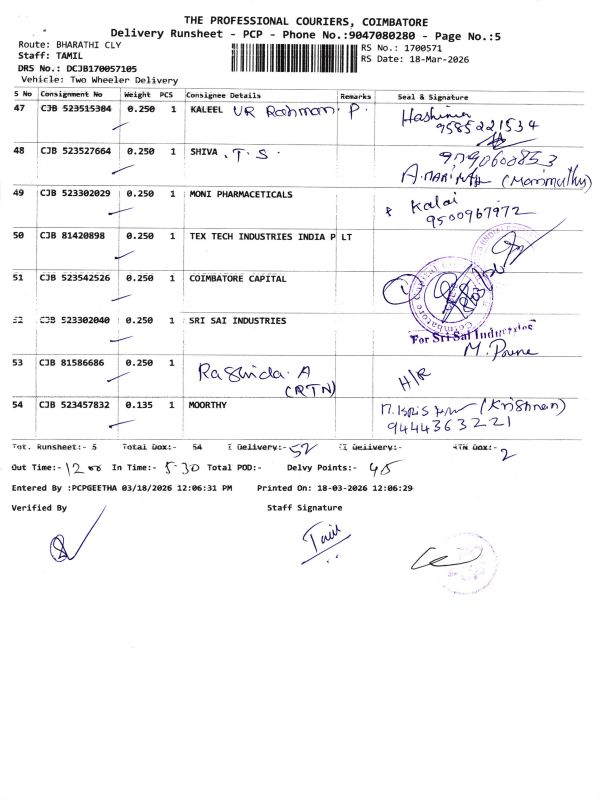 THE PROFESSIONAL COURIERS, COIMBATORE
Delivery Runsheet - PCP - Phone No.:9047080280 - Page No.:5
Route: BHARATHI CLY
RS No.: 1700571
Staff: TAMIL
RS Date: 18-Mar-2026
DRS No.: DCJB170057105
Vehicle: Two Wheeler Delivery
S No Consignment No Weight PCS Consignee Details Remarks Seal & Signature
47 CJB 523515384 0.250 1 KALEEL UR Rahman. P.
Hashima
9585221534
48 CJB 523527664 0.250 1 SHIVA . T. S.
9790600853
A. (Marimuthu)
49 CJB 523302029 0.250 1 MONI PHARMACETICALS
Kalai
9500967972
50 CJB 81420898 0.250 1 TEX TECH INDUSTRIES INDIA P LT
51 CJB 523542526 0.250 1 COIMBATORE CAPITAL
Coimbatore Capital
52 CJB 523302040 0.250 1 SRI SAI INDUSTRIES
For Sri Sai Industries
M.
53 CJB 81586686 0.250 1 Rashida. A
(RTN)
H/R
54 CJB 523457832 0.135 1 MOORTHY
(Krishnan)
9444363221
Tot. Runsheet:- 5 Total Dox:- 54 I Delivery:- 52 II Delivery:- RTN Dox:- 2
Out Time:- 12 00 In Time:- 5.30 Total POD:- Delvy Points:- 45
Entered By :PCPGEETHA 03/18/2026 12:06:31 PM Printed On: 18-03-2026 12:06:29
Verified By Staff Signature
Tamil